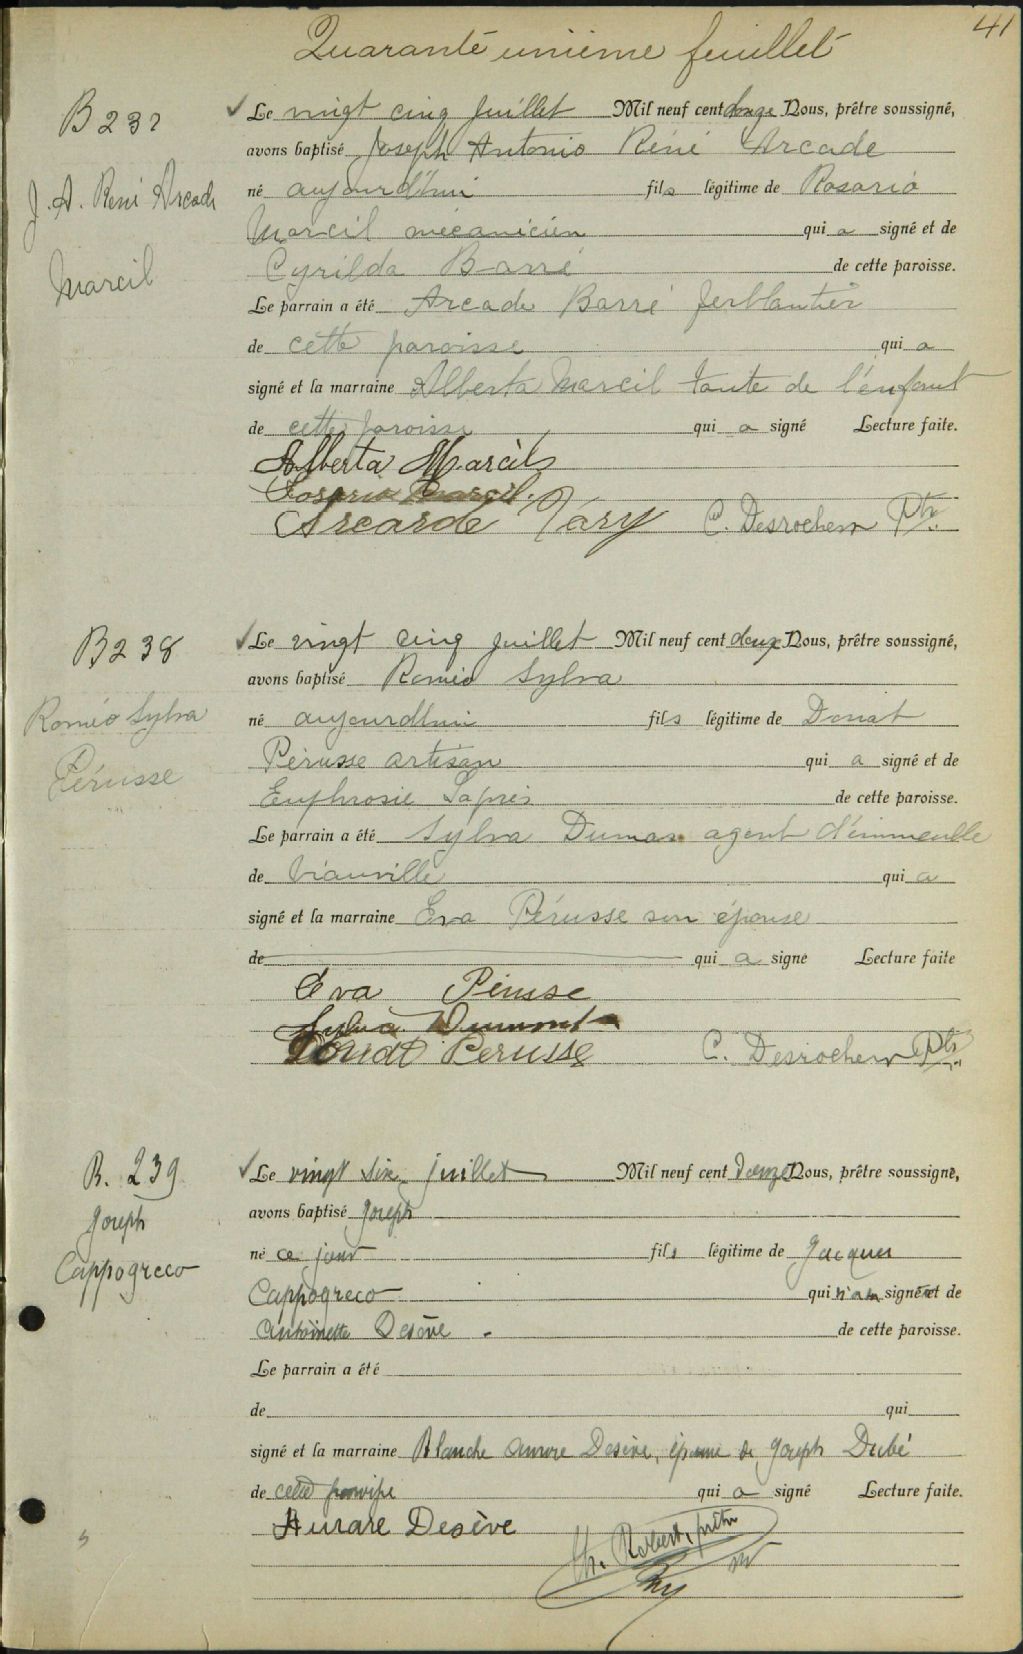 41
Quarante unième feuillet
B 237
J. A. René Arcade
Marcil
Le vingt cinq juillet Mil neuf cent douze Nous, prêtre soussigné,
avons baptisé Joseph Antonio Réné Arcade
né aujourd'hui fils légitime de Rosario
Marcil mécanicien qui a signé et de
Cyrilda Barré de cette paroisse.
Le parrain a été Arcade Barré ferblantier
de cette paroisse qui a
signé et la marraine Alberta Marcil tante de l'enfant
de cette paroisse qui a signé Lecture faite.
Alberta Marcil
Rosario Marcil.
Arcarde C. Desrochers Ptr.
B 238
Roméo Sylva
Pérusse
Le vingt cinq juillet Mil neuf cent douze Nous, prêtre soussigné,
avons baptisé Roméo Sylva
né aujourd'hui fils légitime de Donat
Pérusse artisan qui a signé et de
Euphrosie de cette paroisse.
Le parrain a été Sylva Dumas agent d'immeuble
de Viauville qui a
signé et la marraine Eva Pérusse son épouse
de qui a signé Lecture faite
Eva Pérusse
Sylva
Donat Perusse C. Desrochers Ptr.
B. 239
Joseph
Cappogreco
Le vingt six juillet Mil neuf cent douze Nous, prêtre soussigné,
avons baptisé Joseph
né ce jour fils légitime de Jacques
Cappogreco qui n'a signé et de
Antoinette Desève de cette paroisse.
Le parrain a été
de qui
signé et la marraine Blanche Aurore Desève, épouse de Joseph Dubé
de cette paroisse qui a signé Lecture faite.
Aurore Desève
Th. Robert, prêtre